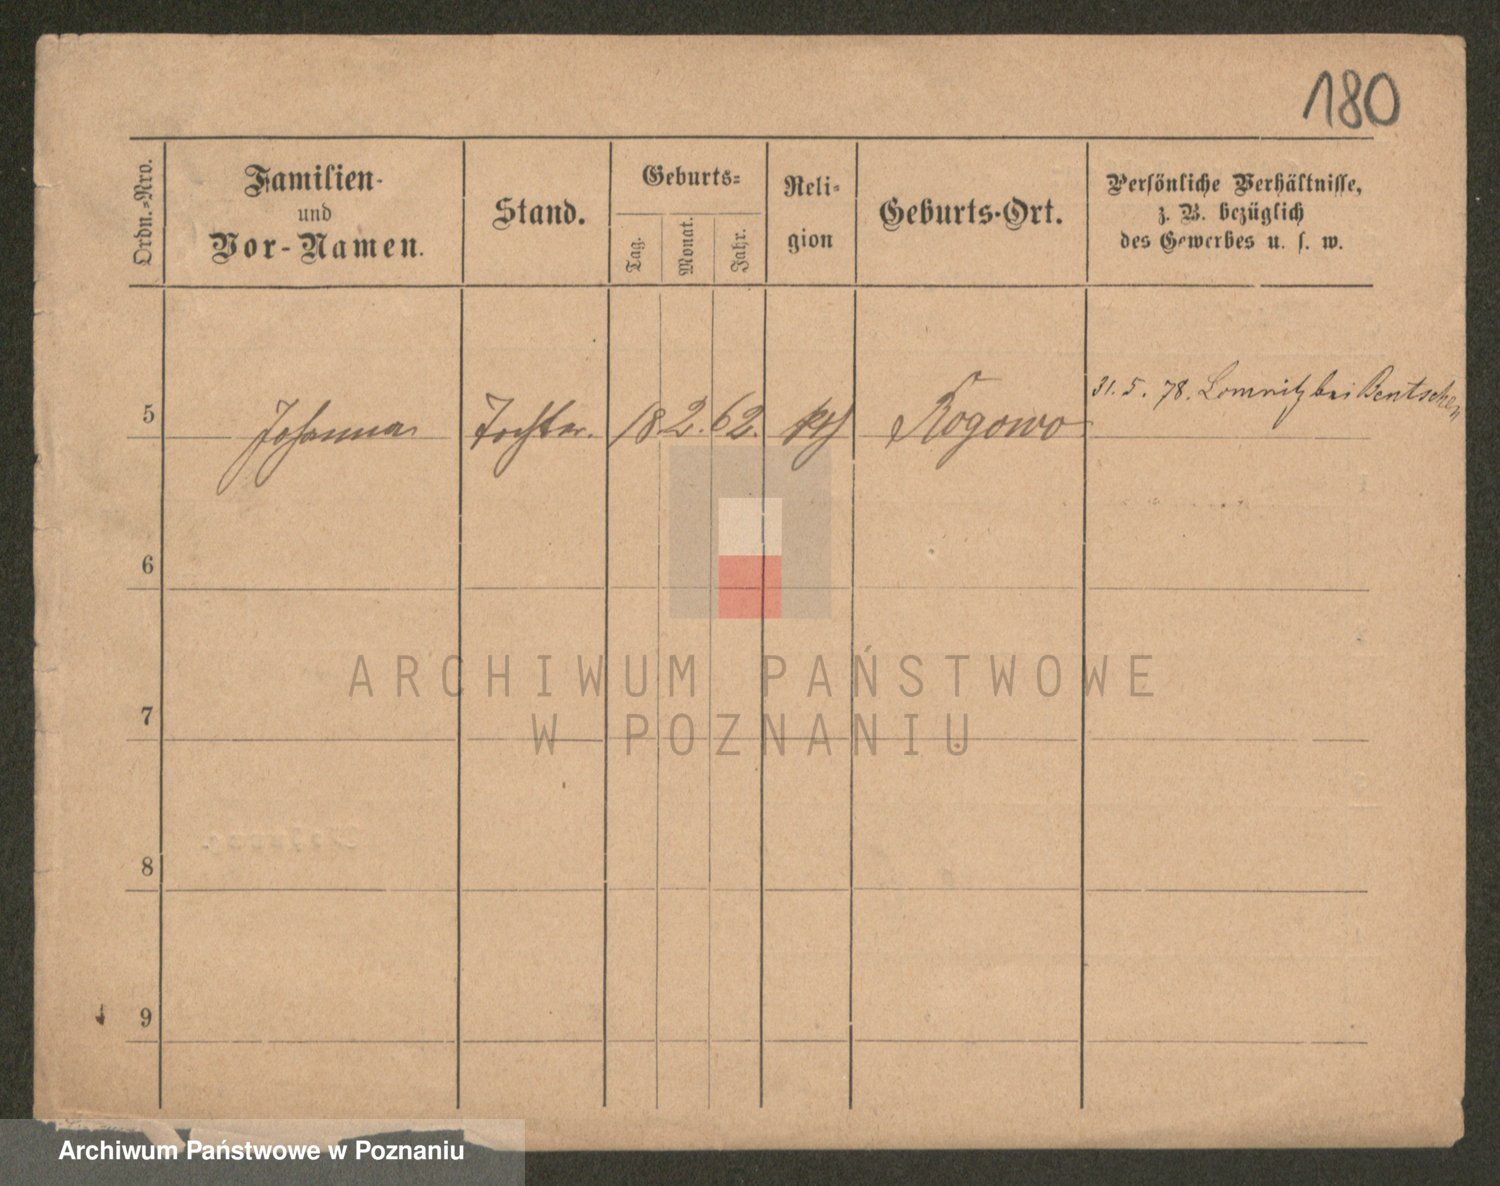 180
Ordn.-Nro.
Familien-
und
Vor-Namen.
Stand.
Geburts-
Tag.
Monat.
Jahr.
Reli-
gion
Geburts-Ort.
Persönliche Verhältnisse,
z. B. bezüglich
des Gewerbes u. s. w.
31. 5. 78. Lomnitz bei Bentschen
5 Johanna Tochter. 18. 2. 62. kth Rogowo
6
7
8
9
ARCHIWUM PAŃSTWOWE
W POZNANIU
Archiwum Państwowe w Poznaniu